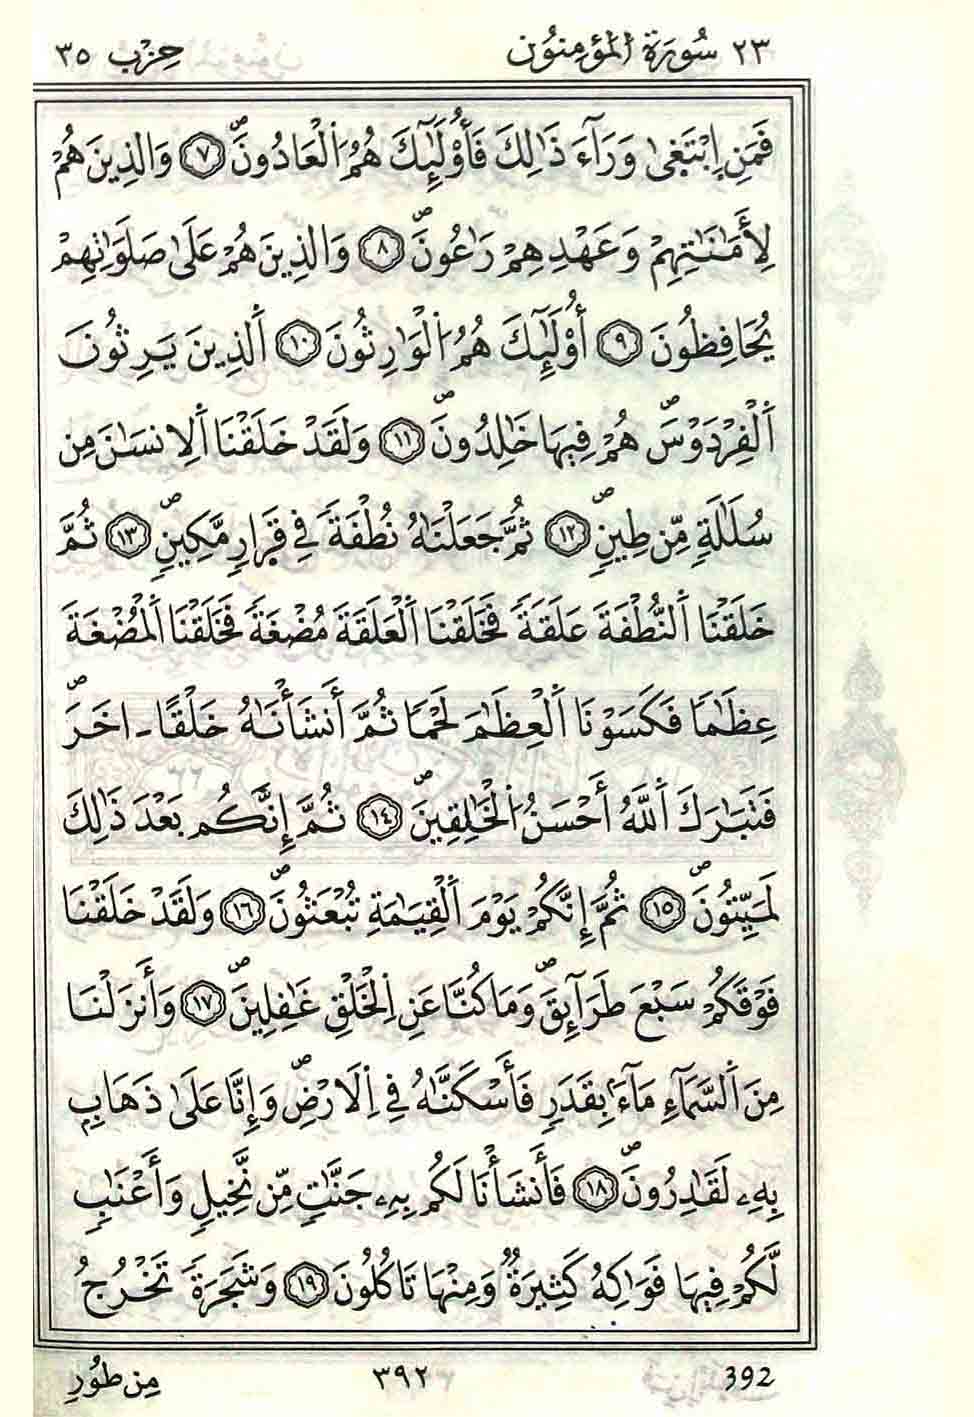 ٢٣ سُورَةُ اَ۬لْمُؤْمِنُونَ حِزْب ٣٥
فَمَنِ اِ۪بْتَغ۪ىٰ وَرَآءَ ذَٰلِكَ فَأُوْلَٰٓئِكَ هُمُ اُ۬لْعَادُونَۖ ٧ وَالذِينَ هُمْ
لِأَمَٰنَٰتِهِمْ وَعَهْدِهِمْ رَٰعُونَۖ ٨ وَالذِينَ هُمْ عَلَىٰ صَلَوَٰتِهِمْ
يُحَافِظُونَ ٩ أُوْلَٰٓئِكَ هُمُ اُ۬لْوَٰرِثُونَ ١٠ اَ۬لذِينَ يَرِثُونَ
اَ۬لْفِرْدَوْسَۖ هُمْ فِيهَا خَٰلِدُونَۖ ١١ وَلَقَدْ خَلَقْنَا اَ۬لِانسَٰنَ مِن
سُلَٰلَةٖ مِّن طِينٖۖ ١٢ ثُمَّ جَعَلْنَٰهُ نُطْفَةٗ فِي قَر۪ارٖ مَّكِينٖۖ ١٣ ثُمَّ
خَلَقْنَا اَ۬لنُّطْفَةَ عَلَقَةٗ فَخَلَقْنَا اَ۬لْعَلَقَةَ مُضْغَةٗ فَخَلَقْنَا اَ۬لْمُضْغَةَ
عِظَٰماٗ فَكَسَوْنَا اَ۬لْعِظَٰمَ لَحْماٗ ثُمَّ أَنشَأْنَٰهُ خَلْقاً ـ اخَرَۖ
فَتَبَٰرَكَ اَ۬للَّهُ أَحْسَنُ اُ۬لْخَٰلِقِينَۖ ١٤ ثُمَّ إِنَّكُم بَعْدَ ذَٰلِكَ
لَمَيِّتُونَۖ ١٥ ثُمَّ إِنَّكُمْ يَوْمَ اَ۬لْقِيَٰمَةِ تُبْعَثُونَۖ ١٦ وَلَقَدْ خَلَقْنَا
فَوْقَكُمْ سَبْعَ طَرَآئِقَۖ وَمَا كُنَّا عَنِ اِ۬لْخَلْقِ غَٰفِلِينَۖ ١٧ وَأَنزَلْنَا
مِنَ اَ۬لسَّمَآءِ مَآءَۢ بِقَدَرٖ فَأَسْكَنَّٰهُ فِي اِ۬لَارْضِۖ وَإِنَّا عَلَىٰ ذَهَابِۢ
بِهِۦ لَقَٰدِرُونَۖ ١٨ فَأَنشَأْنَا لَكُم بِهِۦ جَنَّٰتٖ مِّن نَّخِيلٖ وَأَعْنَٰبٖ
لَّكُمْ فِيهَا فَوَٰكِهُ كَثِيرَةٞ وَمِنْهَا تَاكُلُونَ ١٩ وَشَجَرَةٗ تَخْرُجُ
مِن طُورِ ٣٩٢ 392